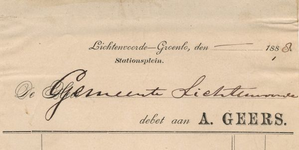 Lichtenvoorde—Groenlo, den — 1888
Stationsplein.
De Gemeente Lichtenvoorde
debet aan A. GEERS.